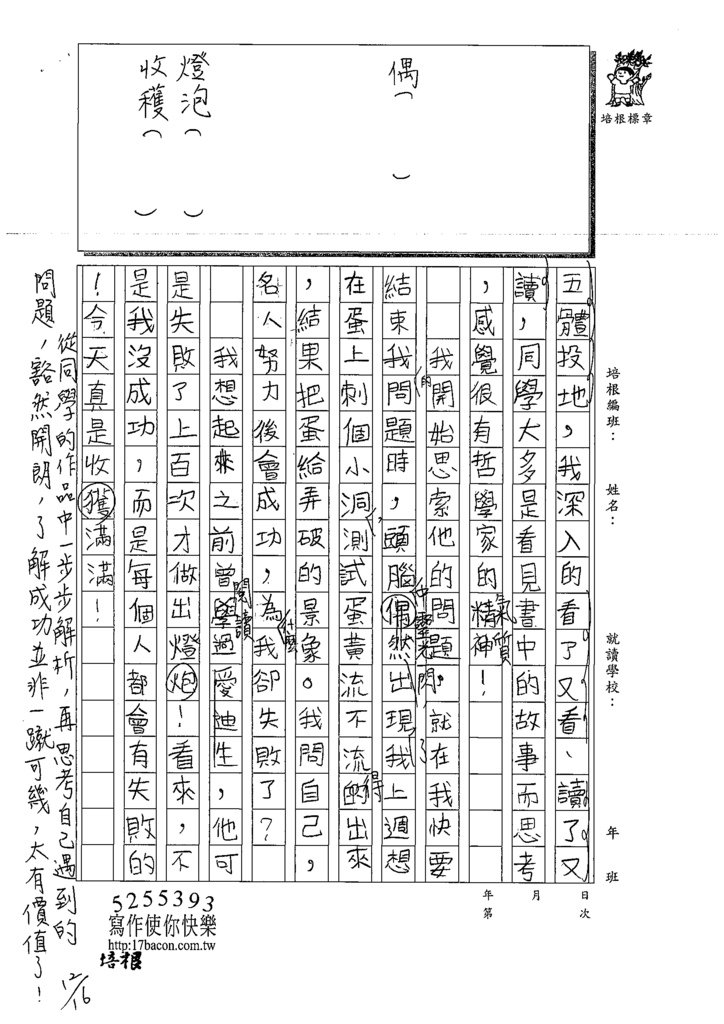 偶（　）
燈泡（　）
收穫（　）
培根標章
培根編班：　姓名：　就讀學校：　年　班
五體投地，我深入的看了又看、讀了又
讀，同學大多是看見書中的故事而思考
，感覺很有哲學家的精神！
氣質
我開始思索他的問題。就在我快要
的
結束我問題時，頭腦偶然出現我上週想
中靈光一閃，
了
在蛋上刺個小洞測試蛋黃流不流的出來
，
得
，結果把蛋給弄破的景象。我問自己，
名人努力後會成功，為我卻失敗了？
什麼
我想起來之前曾學過愛迪生，他可
閱讀
是失敗了上百次才做出燈炮！看來，不
是我沒成功，而是每個人都會有失敗的
！今天真是收獲滿滿！
從同學的作品中一步步解析，再思考自己遇到的
問題，豁然開朗，了解成功並非一蹴可幾，太有價值了！
12/16
年　月　日
第　次
5255393
寫作使你快樂
http:17bacon.com.tw
培根